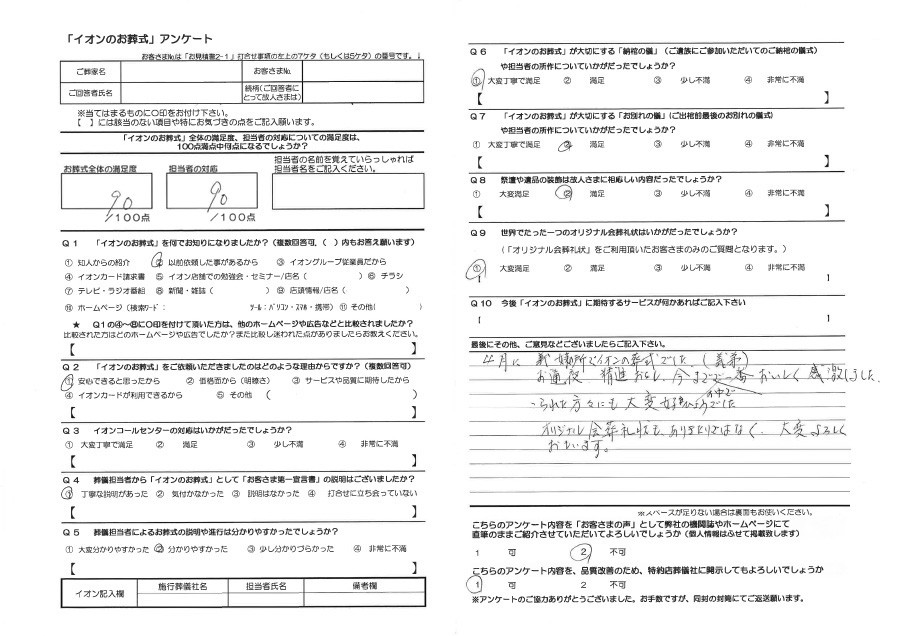 「イオンのお葬式」アンケート
お客さまNo.は「お見積書2-1」打合せ事項の左上の7ケタ（もしくは5ケタ）の番号です。↓
ご葬家名
お客さまNo.
ご回答者氏名
続柄(ご回答者に
とって故人さまは)
※当てはまるものに〇印をお付け下さい。
【　】には該当のない項目や特にお気づきの点をご記入願います。
「イオンのお葬式」全体の満足度、担当者の対応についての満足度は、
100点満点中何点になるでしょうか？
お葬式全体の満足度
担当者の対応
担当者の名前を覚えていらっしゃれば
担当者名をご記入ください。
90
/100点
90
/100点
Q 1　「イオンのお葬式」を何でお知りになりましたか？（複数回答可,（　）内もお答え願います）
① 知人からの紹介　② 以前依頼した事があるから　③ イオングループ従業員だから
④ イオンカード請求書　⑤ イオン店舗での勉強会・セミナー/店名（　）⑥ チラシ
⑦ テレビ・ラジオ番組　⑧ 新聞・雑誌（　）⑨ 店頭情報/店名（　）
⑩ ホームページ（検索ﾜｰﾄﾞ：　ﾂｰﾙ：ﾊﾟｿｺﾝ・ｽﾏﾎ・携帯）⑪ その他(　)
★　Q1の④〜⑧に〇印を付けて頂いた方は、他のホームページや広告などと比較されましたか？
比較された方はどのホームページや広告でしたか？また比較し迷われた点がありましたらお教えください。
【　】
Q 2　「イオンのお葬式」をご依頼いただきましたのはどのような理由からですか？（複数回答可）
① 安心できると思ったから　② 価格面から（明瞭さ）　③ サービスや品質に期待したから
④ イオンカードが利用できるから　⑤ その他　（　）
【　】
Q 3　イオンコールセンターの対応はいかがだったでしょうか？
① 大変丁寧で満足　② 満足　③ 少し不満　④ 非常に不満
【　】
Q 4　葬儀担当者から「イオンのお葬式」として「お客さま第一宣言書」の説明はございましたか？
① 丁寧な説明があった　② 気付かなかった　③ 説明はなかった　④ 打合せに立ち会っていない
【　】
Q 5　葬儀担当者によるお葬式の説明や進行は分かりやすかったでしょうか？
① 大変分かりやすかった　② 分かりやすかった　③ 少し分かりづらかった　④ 非常に不満
【　】
イオン記入欄
施行葬儀社名
担当者氏名
備考欄
Q 6　「イオンのお葬式」が大切にする「納棺の儀」（ご遺族にご参加いただいてのご納棺の儀式）
や担当者の所作についていかがだったでしょうか？
① 大変丁寧で満足　② 満足　③ 少し不満　④ 非常に不満
【　】
Q 7　「イオンのお葬式」が大切にする「お別れの儀」（ご出棺前最後のお別れの儀式）
や担当者の所作についていかがだったでしょうか？
① 大変丁寧で満足　② 満足　③ 少し不満　④ 非常に不満
【　】
Q 8　祭壇や遺品の装飾は故人さまに相応しい内容だったでしょうか？
① 大変満足　② 満足　③ 少し不満　④ 非常に不満
【　】
Q 9　世界でたった一つのオリジナル会葬礼状はいかがだったでしょうか？
（「オリジナル会葬礼状」をご利用頂いたお客さまのみのご質問となります。）
① 大変満足　② 満足　③ 少し不満　④ 非常に不満
【　】
Q 10　今後「イオンのお葬式」に期待するサービスが何かあればご記入下さい
【　】
最後にその他、ご意見などございましたらご記入下さい。
4月に　所でイオンの葬式でした。(義弟)
お通夜、精進おとし、今までで一番おいしく感激しました。
られた方々にも大変
オリジナル会葬礼状も、ありきたりではなく、大変よろしく
おもいます。
※スペースが足りない場合は裏面もお使いください。
こちらのアンケート内容を「お客さまの声」として弊社の機関誌やホームページにて
直筆のままご紹介させていただいてよろしいでしょうか（個人情報はふせて掲載致します）
1　可　2　不可
こちらのアンケート内容を、品質改善のため、特約店葬儀社に開示してもよろしいでしょうか
1　可　2　不可
※アンケートのご協力ありがとうございました。お手数ですが、同封の封筒にてご返送願います。